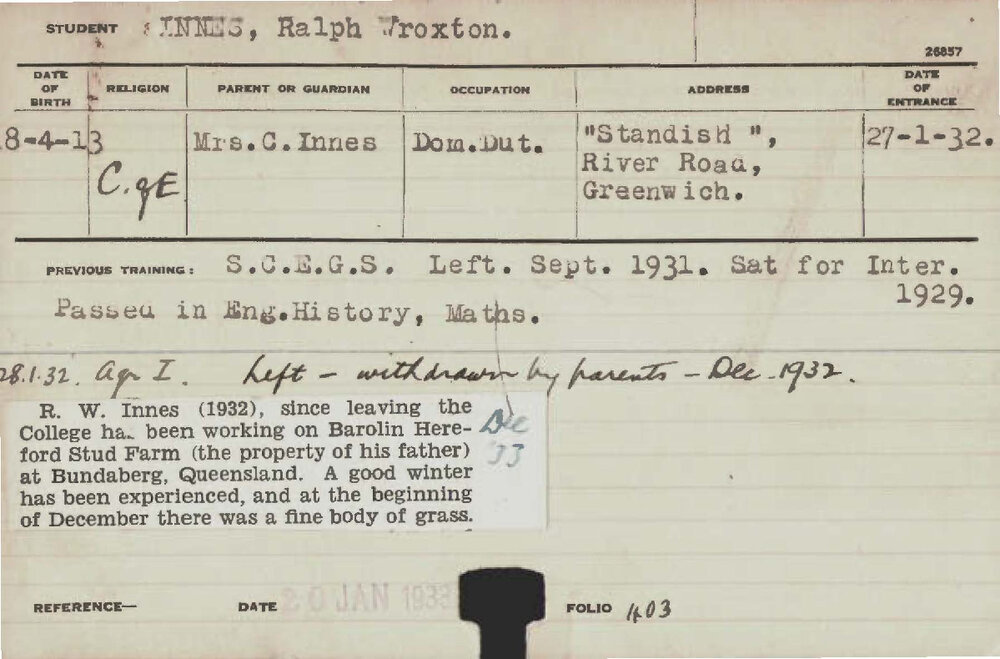 STUDENT INNES, Ralph Wroxton.
26857
DATE OF BIRTH RELIGION PARENT OR GUARDIAN OCCUPATION ADDRESS DATE OF ENTRANCE
8-4-13 C. of E Mrs. C. Innes Dom. Dut. "Standish", 27-1-32.
River Road,
Greenwich.
PREVIOUS TRAINING: S.C.E.G.S. Left. Sept. 1931. Sat for Inter.
1929.
Passed in Eng. History, Maths.
28.1.32. Agr I. Left - withdrawn by parents - Dec. 1932.
R. W. Innes (1932), since leaving the
College ha. been working on Barolin Here-
ford Stud Farm (the property of his father)
at Bundaberg, Queensland. A good winter
has been experienced, and at the beginning
of December there was a fine body of grass.
Dec
'33
REFERENCE— DATE 20 JAN 1933 FOLIO 403